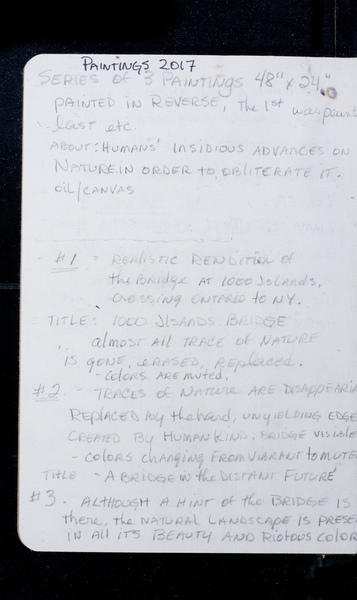 PAINTINGS 2017
SERIES of 3 PAINTINGS 48" x 24"
PAINTED IN REVERSE, the 1st was
last etc.
ABOUT: HUMANS' INSIDIOUS ADVANCES ON
NATURE IN ORDER to OBLITERATE IT.
OIL/CANVAS
#1 = REALISTIC RENDITION of
the Bridge AT 1000 Islands,
CROSSING ONTARIO to NY.
TITLE: 1000 ISLANDS BRIDGE
almost all TRACE OF NATURE
IS GONE, ERASED, REPLACED.
- COLORS ARE MUTED.
#2 - TRACES OF NATURE ARE DISAPPEARIN
REPLACED by the hard, UNYIELDING EDGE
CREATED BY HUMANKIND. BRIDGE VISIBLE
- COLORS CHANGING FROM VIBRANT to MUTE
TITLE - A BRIDGE IN the DISTANT FUTURE
#3 - ALTHOUGH A HINT of the BRIDGE IS
there, the NATURAL LANDSCAPE IS PRESE
IN All ITS BEAUTY AND RIOTOUS COLOR